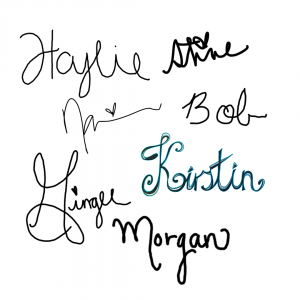 Haylie Shine
Bob
Kirstin
Ginger
Morgan